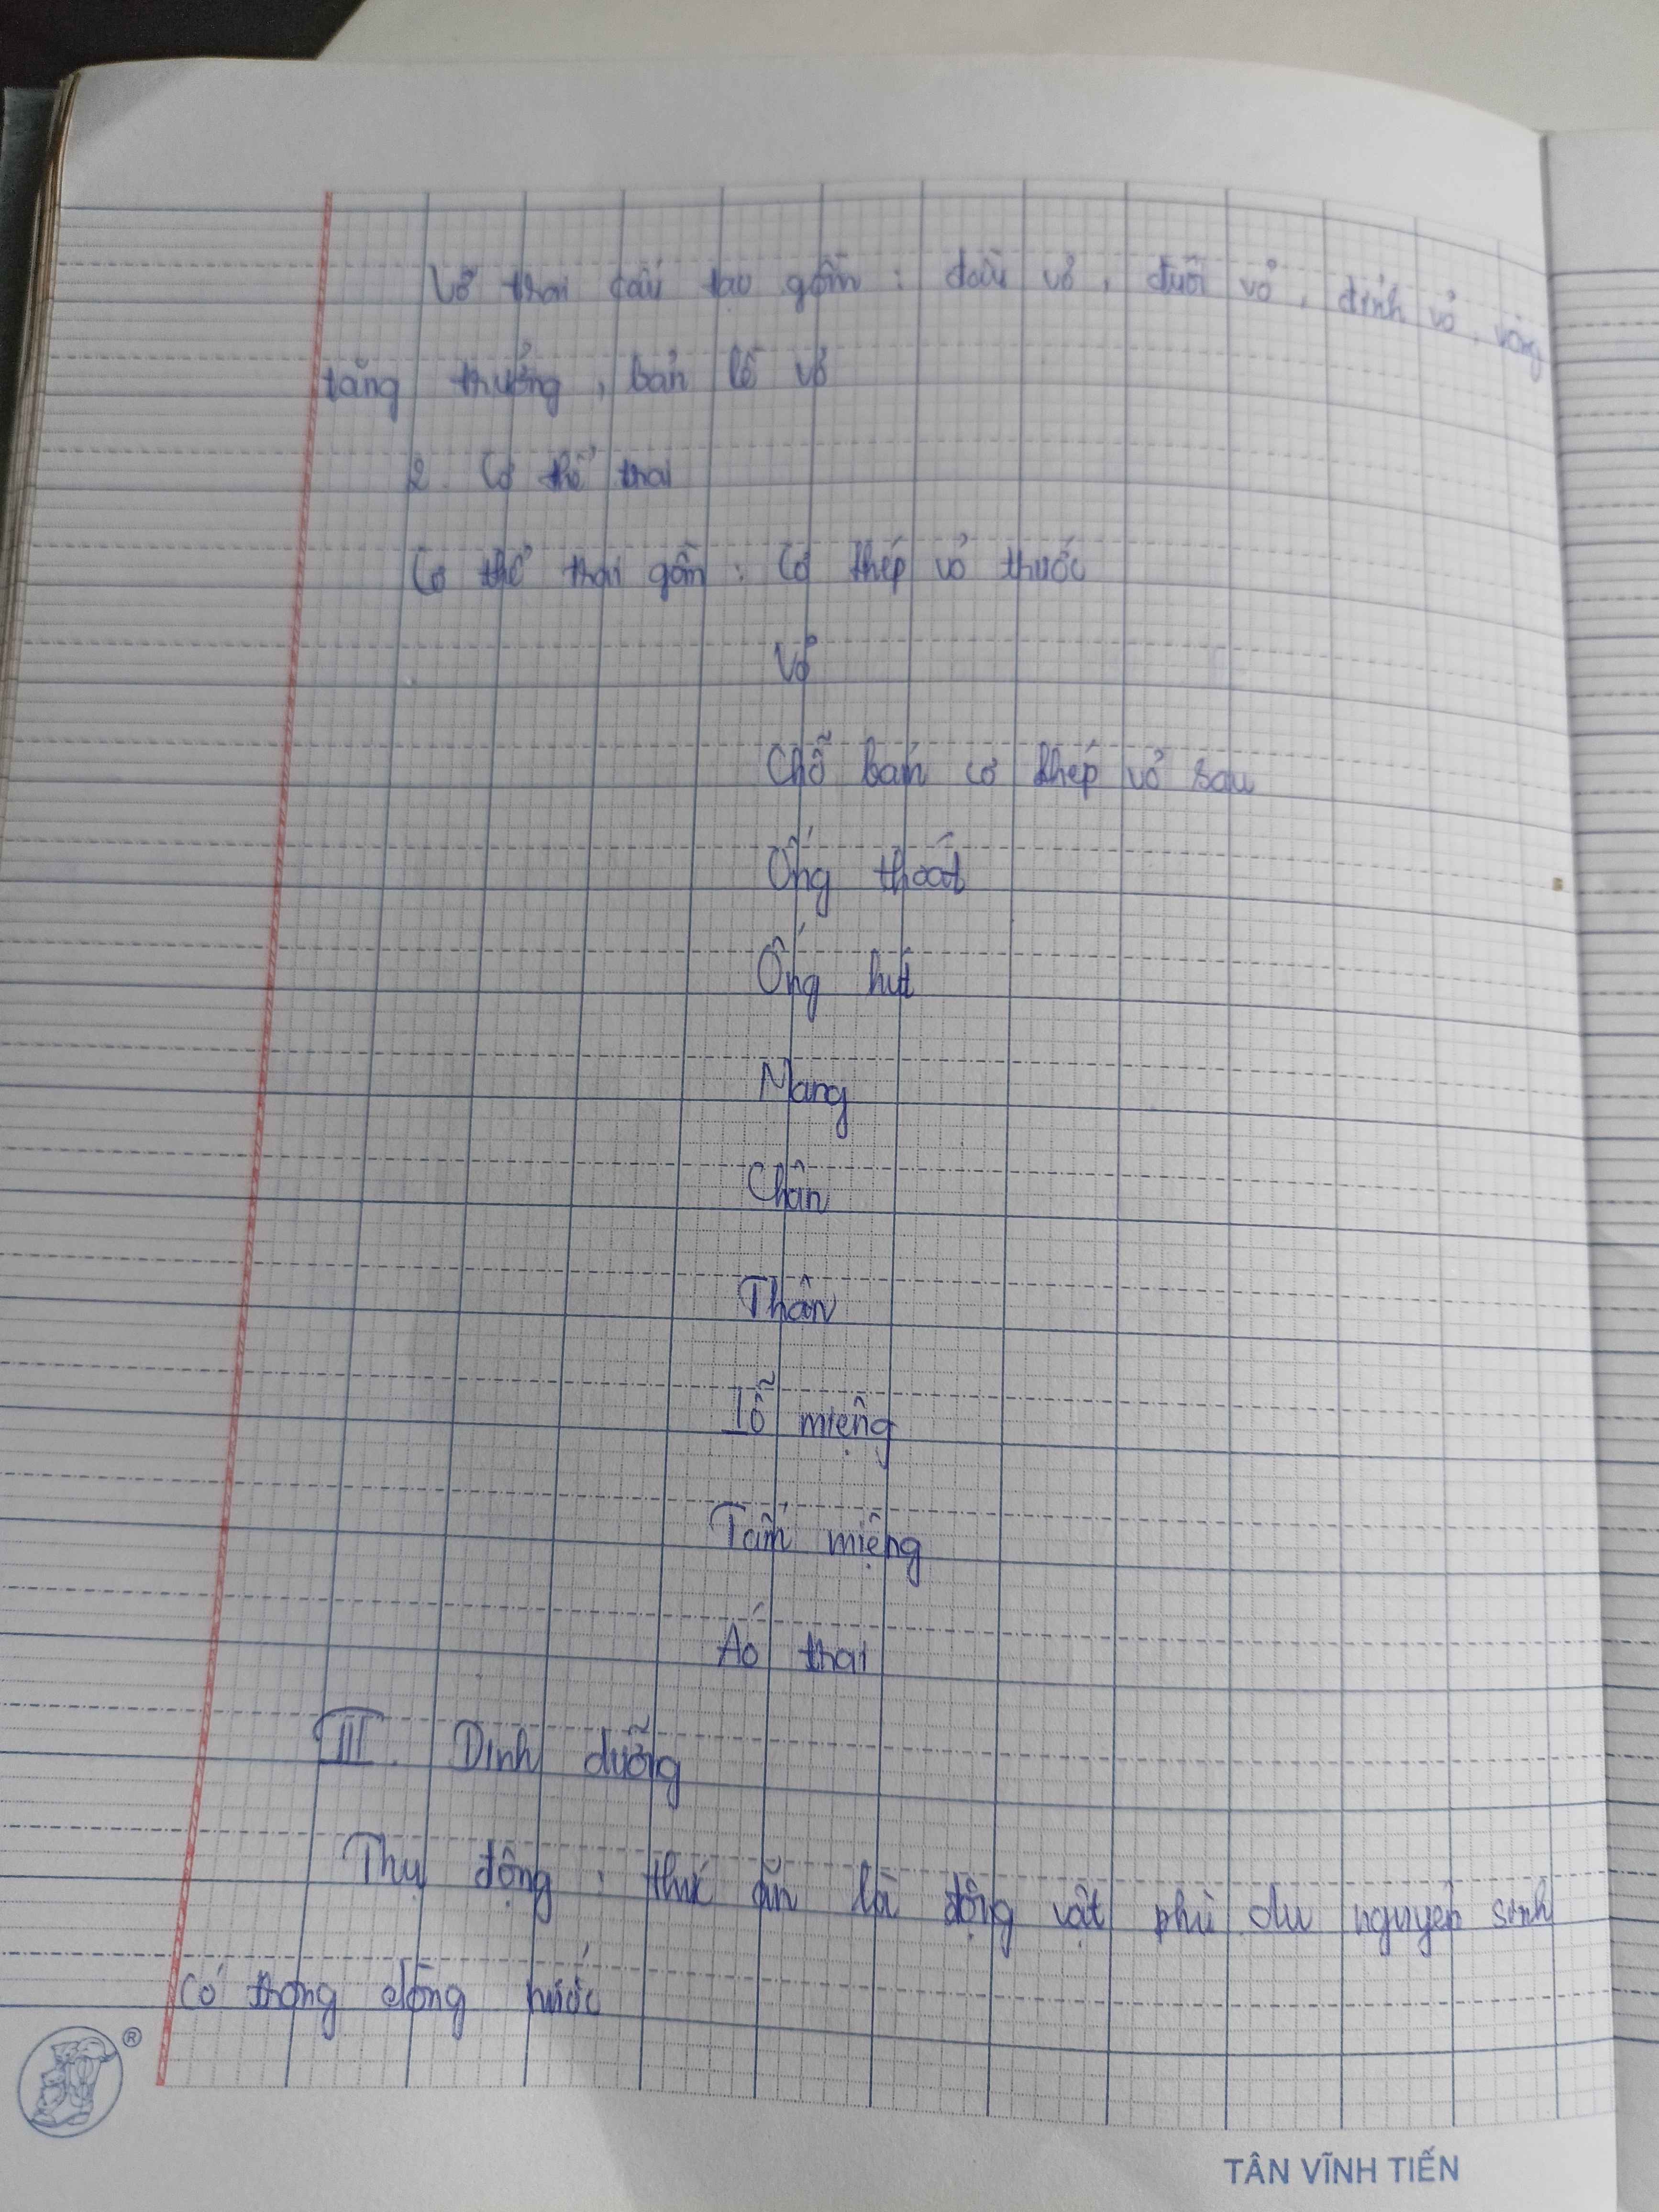 Vỏ trai cấu tạo gồm : đầu vỏ , đuôi vỏ , đỉnh vỏ , vòng
tăng trưởng , bản lề vỏ
2. Cơ thể trai
Cơ thể trai gồm : Cơ khép vỏ trước
Vỏ
Chỗ bám cơ khép vỏ sau
Ống thoát
Ống hút
Mang
Chân
Thân
Lỗ miệng
Tấm miệng
Áo trai
III. Dinh dưỡng
Thụ động : thức ăn là động vật phù du nguyên sinh
có trong dòng nước
®
TÂN VĨNH TIẾN